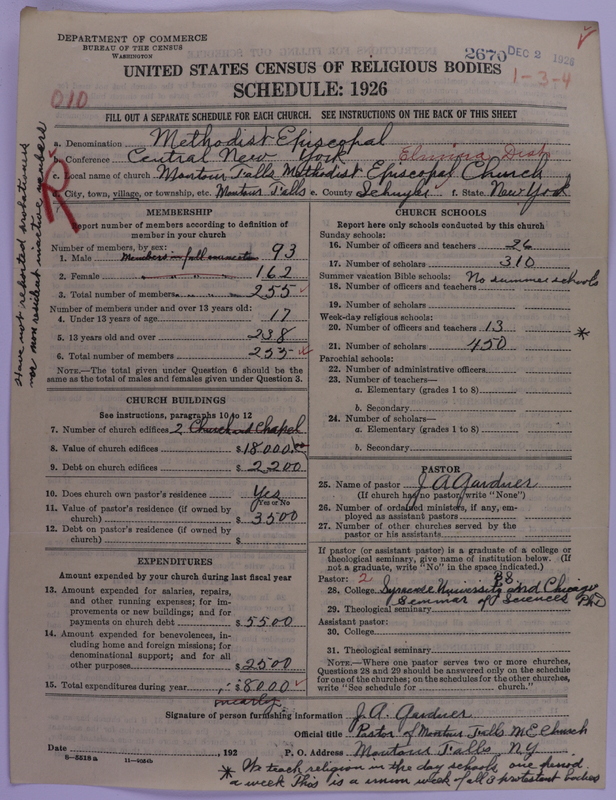 DEPARTMENT OF COMMERCE
BUREAU OF THE CENSUS
WASHINGTON
2670 DEC 2 1926
UNITED STATES CENSUS OF RELIGIOUS BODIES
1-3-4
SCHEDULE: 1926
010
FILL OUT A SEPARATE SCHEDULE FOR EACH CHURCH. SEE INSTRUCTIONS ON THE BACK OF THIS SHEET
a. Denomination Methodist Episcopal
b. Conference Central New York Elmira Dist
c. Local name of church Montour Falls Methodist Episcopal Church
d. City, town, village, or township, etc. Montour Falls e. County Schuyler f. State New York
R
Have not reported probationers
nor non resident inactive members
MEMBERSHIP
Report number of members according to definition of
member in your church
Number of members, by sex:
1. Male Members in full 93
2. Female 162
3. Total number of members 255
Number of members under and over 13 years old:
4. Under 13 years of age 17
5. 13 years old and over 238
6. Total number of members 255
NOTE.—The total given under Question 6 should be the
same as the total of males and females given under Question 3.
CHURCH BUILDINGS
See instructions, paragraphs 10 to 12
7. Number of church edifices 2 Church and Chapel
8. Value of church edifices $18000.00
9. Debt on church edifices $2200
10. Does church own pastor's residence Yes
Yes or No
11. Value of pastor's residence (if owned by
church) $3500
12. Debt on pastor's residence (if owned by
church) $
EXPENDITURES
Amount expended by your church during last fiscal year
13. Amount expended for salaries, repairs,
and other running expenses; for im-
provements or new buildings; and for
payments on church debt $5500
14. Amount expended for benevolences, in-
cluding home and foreign missions; for
denominational support; and for all
other purposes $2500
15. Total expenditures during year $8000
nearly
CHURCH SCHOOLS
Report here only schools conducted by this church
Sunday schools:
16. Number of officers and teachers 26
17. Number of scholars 310
Summer vacation Bible schools: No summer schools
18. Number of officers and teachers
19. Number of scholars
Week-day religious schools:
20. Number of officers and teachers 13
*
21. Number of scholars 450
Parochial schools:
22. Number of administrative officers
23. Number of teachers—
a. Elementary (grades 1 to 8)
b. Secondary
24. Number of scholars—
a. Elementary (grades 1 to 8)
b. Secondary
PASTOR
25. Name of pastor J A Gardner
(If church has no pastor, write "None")
26. Number of ordained ministers, if any, em-
ployed as assistant pastors
27. Number of other churches served by the
pastor or his assistants
If pastor (or assistant pastor) is a graduate of a college or
theological seminary, give name of institution below. (If
not a graduate, write "No" in the space indicated.)
Pastor: 2
28. College Syracuse University and Chicago
Seminar of Sciences PhD
29. Theological seminary
Assistant pastor:
30. College
31. Theological seminary
NOTE.—Where one pastor serves two or more churches,
Questions 28 and 29 should be answered only on the schedule
for one of the churches; on the schedules for the other churches,
write "See schedule for church."
Signature of person furnishing information J. A. Gardner
Official title Pastor of Montour Falls M E Church
Date , 192 P. O. Address Montour Falls, N.Y.
8-5518 a
* We teach religion in the day schools one period
a week This is a union week of all 3 protestant bodies